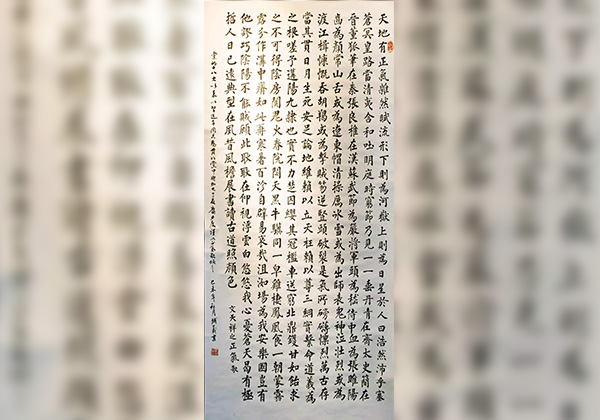 天地有正氣雜然賦流形下則為河嶽上則為日星於人曰浩然沛乎塞
蒼冥皇路當清夷含和吐明庭時窮節乃見一一垂丹青在齊太史簡在
晉董狐筆在秦張良椎在漢蘇武節為嚴將軍頭為嵇侍中血為張睢陽
齒為顏常山舌或為遼東帽清操厲冰雪或為出師表鬼神泣壯烈或為
渡江楫慷慨吞胡羯或為擊賊笏逆豎頭破裂是氣所磅礡凜烈萬古存
當其貫日月生死安足論地維賴以立天柱賴以尊三綱實繫命道義為
之根嗟予遘陽九隸也實不力楚囚纓其冠檻車送窮北鼎鑊甘如飴求
之不可得陰房闃鬼火春院閟天黑牛驥同一皁雞棲鳳凰食一朝蒙霧
露分作溝中瘠如此再寒暑百沴自辟易哀哉沮洳場為我安樂國豈有
他謬巧陰陽不能賊顧此耿耿在仰視浮雲白悠悠我心憂蒼天曷有極
哲人日已遠典型在夙昔風檐展書讀古道照顏色
文天祥之正氣歌